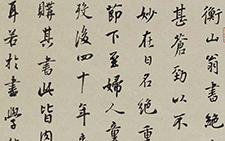 衡山翁書絶
甚蒼勁以不
妙在日名絶重
節下至婦人童
歿後四十年
購其書此皆肉
耳若於書學